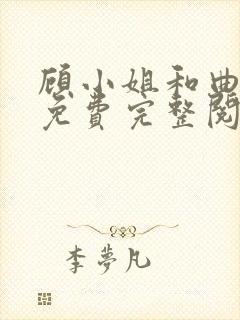 顾小姐和曲
免费完整阅
李梦凡